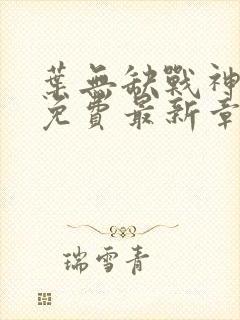 葉無缺戰神
免費最新章
瑞雪青